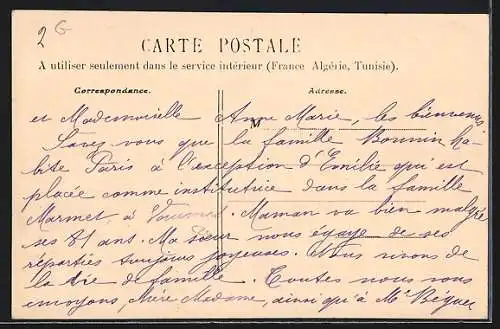 2 G
CARTE POSTALE
A utiliser seulement dans le service intérieur (France Algérie, Tunisie).
Correspondance.
Adresse.
M
et Mademoiselle Anne Marie, les bienvenus
Savez-vous que la famille Bonnin ha-
bite Paris à l'exception d'Emilie qui est
placée comme institutrice dans la famille
Marmet, à . Maman va bien malgré
ses 81 ans. Ma sœur nous égaye de ses
réparties toujours joyeuses. Nous vivons de
la vie de famille. Toutes nous vous
envoyons, chère Madame, ainsi qu'à Mr Béguer